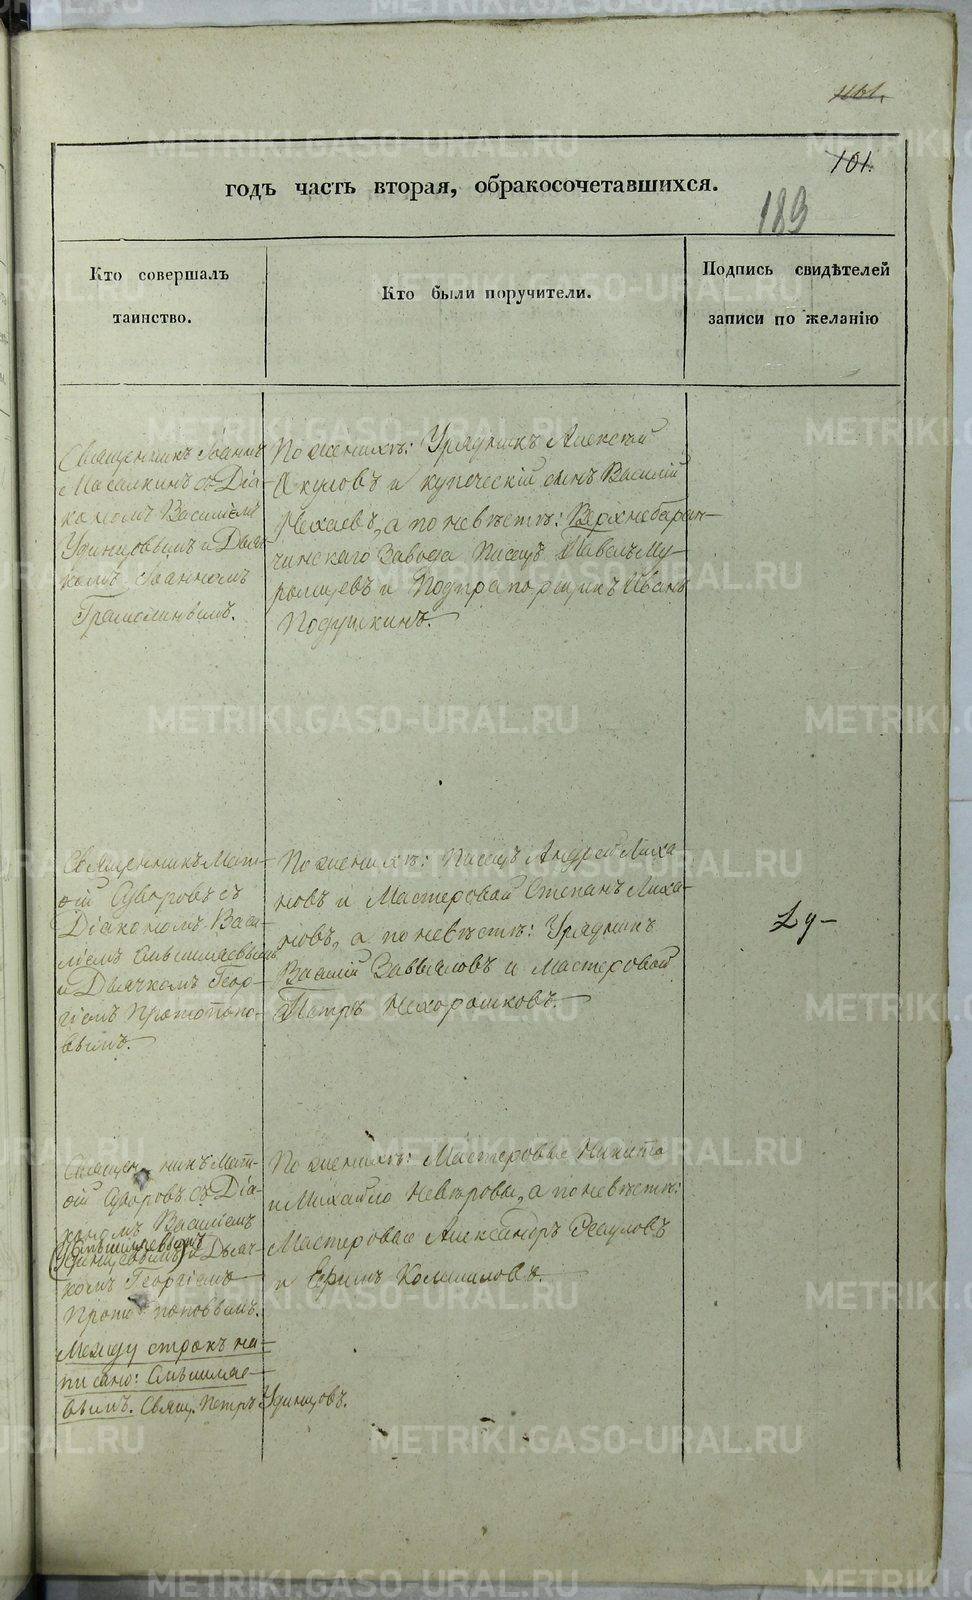 101.
189
годъ часть вторая, обракосочетавшихся.
Кто совершалъ
таинство.
Кто были поручители.
Подпись свидѣтелей
записи по желанію
Священникъ Іоаннъ
съ Діа-
кономъ Василіемъ
Удинцовымъ и Дьяч-
комъ Іоанномъ
По женихѣ: Урядникъ Алексѣй
Окуловъ и купеческій сынъ Василій
а по невѣстѣ: Верхнебаран-
чинскаго Завода Писецъ Павелъ
и Подпрапорщикъ Иванъ
Подушкинъ.
Священникъ Мат-
ѳій Суворовъ съ
Діакономъ Васи-
ліемъ
и Дьячкомъ Геор-
гіемъ Протопопо-
вымъ.
По женихѣ: Писецъ Андрей Лиха-
новъ и Мастеровой Степанъ Лиха-
новъ, а по невѣстѣ: Урядникъ
Василій Завьяловъ и Мастеровой
Петръ Нехорошковъ.
Священникъ Мат-
ѳій Суворовъ съ Діа-
кономъ Василіемъ
(Удинцовымъ) и Дьяч-
комъ Георгіемъ
Протопоповымъ.
Между строкъ на-
писано:
Свящ. Петръ Удинцовъ.
По женихѣ: Мастеровые Никита
и Михайло Невѣровы, а по невѣстѣ:
Мастеровые Александръ Есауловъ
и Ефимъ
METRIKI.GASO-URAL.RU